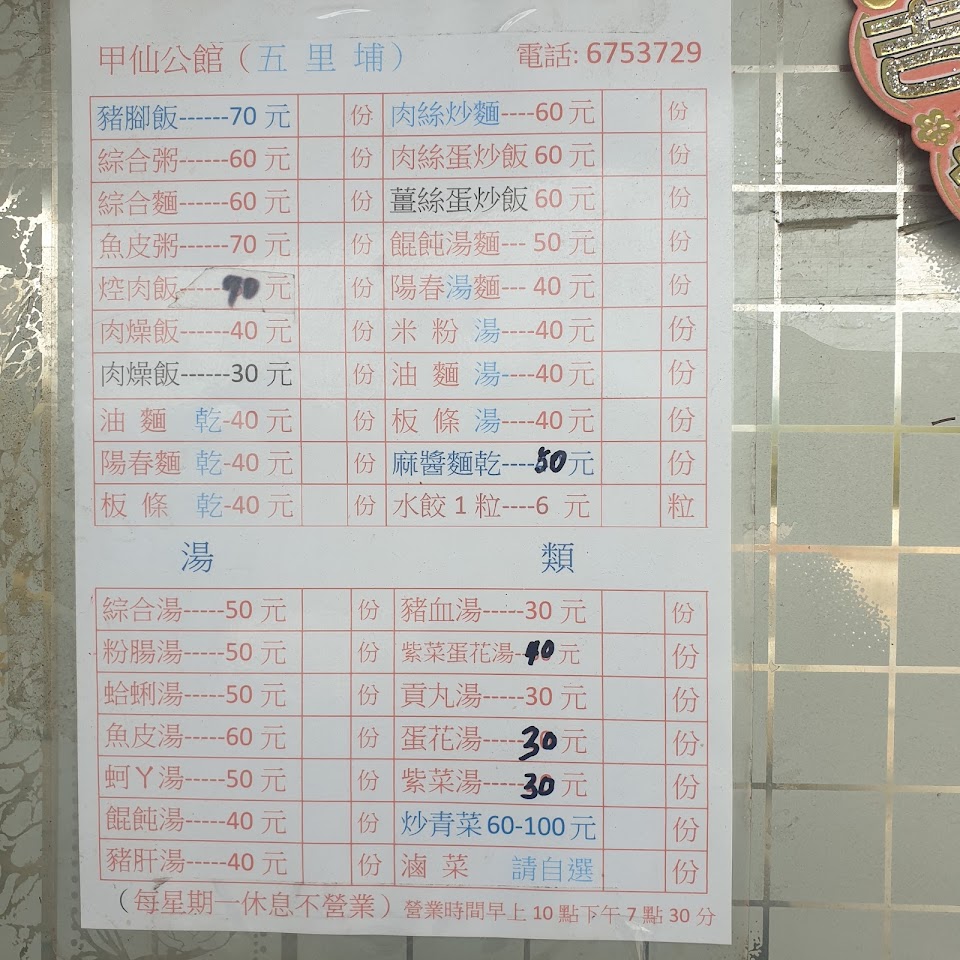 甲仙公館（五 里 埔） 電話: 6753729
豬腳飯------70 元 份 肉絲炒麵----60 元 份
綜合粥------60 元 份 肉絲蛋炒飯 60 元 份
綜合麵------60 元 份 薑絲蛋炒飯 60 元 份
魚皮粥------70 元 份 餛飩湯麵--- 50 元 份
焢肉飯------70 元 份 陽春湯麵--- 40 元 份
肉燥飯------40 元 份 米 粉 湯----40 元 份
肉燥飯------30 元 份 油 麵 湯----40 元 份
油 麵 乾-40 元 份 板 條 湯----40 元 份
陽春麵 乾-40 元 份 麻醬麵乾----50元 份
板 條 乾-40 元 份 水餃 1 粒----6 元 粒
湯 類
綜合湯-----50 元 份 豬血湯-----30 元 份
粉腸湯-----50 元 份 紫菜蛋花湯-40 元 份
蛤蜊湯-----50 元 份 貢丸湯-----30 元 份
魚皮湯-----60 元 份 蛋花湯-----30元 份
蚵ㄚ湯-----50 元 份 紫菜湯-----30 元 份
餛飩湯-----40 元 份 炒青菜 60-100 元 份
豬肝湯-----40 元 份 滷 菜 請自選 份
（每星期一休息不營業）營業時間早上 10 點下午 7 點 30 分